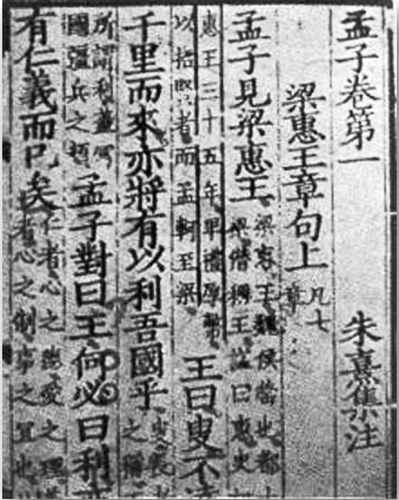 孟子卷第一 朱熹集注
梁惠王章句上 凡七章
孟子見梁惠王 梁惠王魏侯罃也都大
梁僭稱王諡曰惠史
惠王三十五年卑禮厚幣
以招賢者而孟軻至梁
王曰叟不遠
千里而來亦將有以利吾國乎 叟長老
之稱王
所謂利蓋富
國彊兵之類
孟子對曰王何必曰利亦
有仁義而已矣 仁者心之德愛之理義
者心之制事之宜也